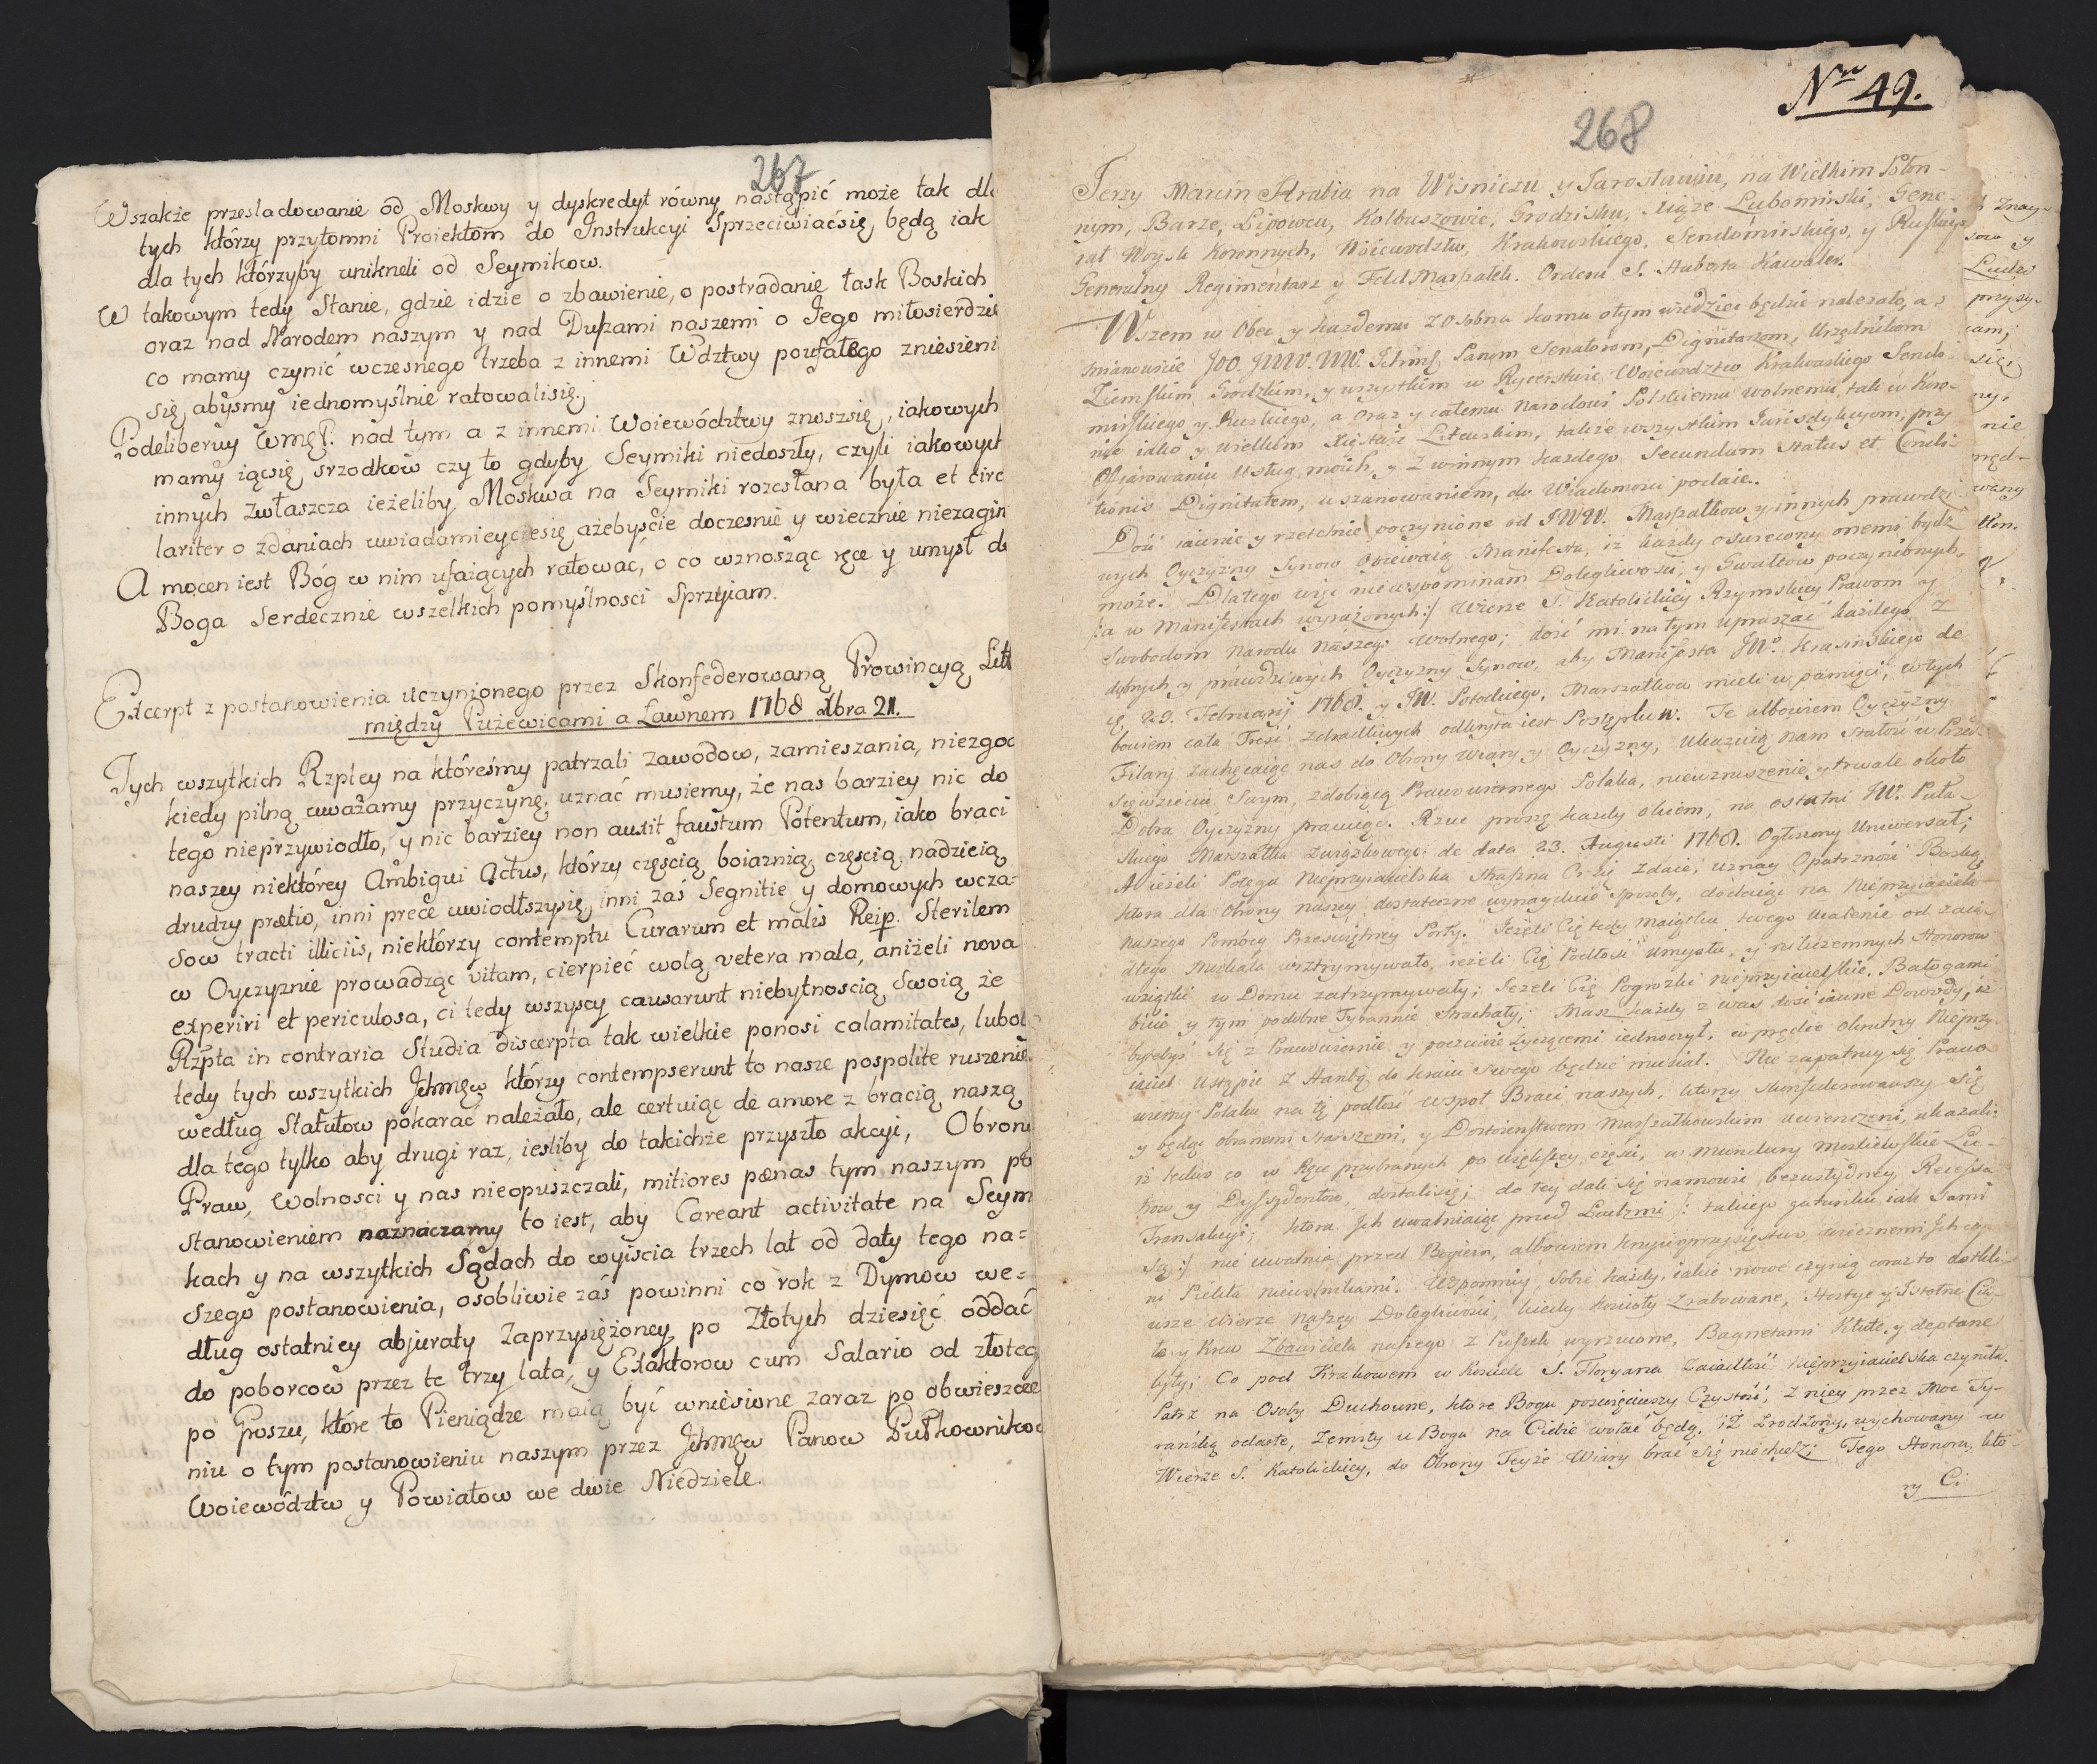 267
Wszakże przesladowanie od Moskwy y dyskredyt równy nastąpić może tak dla
tych którzy przytomni Proiektom do Instrukcyi Sprzeciwiać się będą iak
dla tych którzyby unikneli od Seymikow.
W takowym tedy Stanie, gdzie idzie o zbawienie, o postradanie łask Boskich
oraz nad Narodem naszym y nad Duszami naszemi o Jego miłosierdzie
co mamy czynić wczesnego trzeba z innemi Wdztwy poufałego zniesieni
się abysmy iednomyślnie ratowalisię.
Podeliberuy WMęP. nad tym a z innemi Woiewództwy znoszsię, iakowych
mamy iąćsię srzodkow czy to gdyby Seymiki niedoszły, czyli iakowych
innych zwłaszcza ieżeliby Moskwa na Seymiki rozesłana była et circ
lariter o zdaniach uwiadamieyciesię ażebyście doczesnie y wiecznie niezagin
A mocen iest Bóg w nim ufaiących ratować, o co wznosząc ręce y umysł do
Boga Serdecznie wszelkich pomyślnosci Sprzyiam.
Excerpt z postanowienia uczynionego przez Skonfederowaną Prowincyą Litt
między Pużewicami a Ławnem 1768 Xbra 21.
Tych wszytkich Rzpley na któreśmy patrzali zawodow, zamieszania, niezgod
kiedy pilną uważamy przyczynę, uznać musiemy, że nas barziey nic do
tego nieprzywiodło, y nic barziey non auxit faustum Potentum, iako braci
naszey niektórey Ambigui Actus, którzy częscią boiaznią, częscią nadzieią
drudzy prætio, inni prece uwiodłszysię, inni zaś Segnitie y domowych wcza-
sow tracti illiciis, niektórzy contemptu Curarum et malis Reip. Sterilem
w Oyczyznie prowadząc vitam, cierpieć wolą vetera mala, aniżeli nova
experiri et periculosa, ci tedy wszyscy causarunt niebytnoscią Swoią że
Rzpta in contraria Studia discerpta tak wielkie ponosi calamitates, lubo
tedy tych wszytkich Jchmęw którzy contempserunt to nasze pospolite ruszenie
według Statutow pokarać należało, ale certuiąc de amore z bracią naszą
dla tego tylko aby drugi raz, iesliby do takichże przyszło akcyi, Obron
Praw, Wolnosci y nas nieopuszczali, mitiores pænas tym naszym po
stanowieniem naznaczamy to iest, aby Careant activitate na Seym
kach y na wszytkich Sądach do wyiscia trzech lat od daty tego na=
szego postanowienia, osobliwie zaś powinni co rok z Dymow we=
dług ostatniey abjuraty Zaprzysiężoney po Złotych dziesięć oddać
do poborcow przez te trzy lata, y Exaktorow cum Salario od złoteg
po Groszu, które to Pieniądze maią być wniesione zaraz po obwieszcze
niu o tym postanowieniu naszym przez Jchmęw Panow Pułkownikow
Woiewództw y Powiatow we dwie Niedziele.
Nro 49.
268
Jerzy Marcin Hrabia na Wiśniczu y Jarosławiu, na Wielkim Połon-
nym, Barze, Lipowcu, Kolbuszowie, Grodzisku, Xiąże Lubomirski, Gene-
rał Woysk Koronnych, Woiewodztw, Krakowskiego, Sendomirskiego, y Ruskiego
Generalny Regimentarz y FeldMarszałek. Orderu S. Huberta Kawaler.
Wszem w Obec y każdemu zosobna komu otym wiedzieć będzie należało, a
mianowicie JOO. JWW. WW. Ichmć Panom Senatorom, Dignitarzom, Urzędnikom
Ziemskim Grodzkim, y wszystkim w Rycerstwie Woiewodztw Krakowskiego Sendo-
mirskiego y Ruskiego, a oraz y całemu Narodowi Polskiemu wolnemu, tak w Koro-
nie iako y wielkim Xięstwie Litewskim, także wszystkim Jurisdykcyom, przy
Ofiarowaniu usług moich, y z winnym każdego Secundum Status et Condi-
tionis Dignitatem, uszanowaniem, do Wiadomości podaię.
Dość iawnie y rzetelnie poczynione od JWW. Marszałkow y innych prawdzi-
wych Oyczyzny Synow Opiewaią Manifesta, iż każdy oświecony onemi bydź
może. Dlatego więc niewspominam Dolegliwości, y Gwałtow poczynionych
/:a w Manifestach wyrażonych:/ Wierze S. Katolickiey Rzymskiey Prawom y
Swobodom Narodu naszego wolnego; dość mi na tym upraszać każdego z
dobrych y prawdziwych Oyczyzny Synow, aby Manifesta JWo. Krasińskiego de
29. Februarij 1768. y JW. Potockiego, Marszałkow mieli w pamięci, w tych
bowiem cała Treść zdradliwych odkryta iest Postępkow. Te albowiem Oyczyzny
Filary zachęcaiąc nas do Obrony Wiary y Oyczyzny, ukazuią nam stałość w Przed-
sięwzięciu Swym, zdobiącą Prawowiernego Polaka, niewzruszenie y trwale około
Dobra Oyczyzny pracuiąc. Rzuć proszę każdy okiem, na ostatni JW. Puła-
skiego Marszałka Związkowego de data 23. Augusti 1768. Ogłoszony Uniwersał;
A ieżeli Potęga Nieprzyiacielska straszna Ci się zdaie, uznay Opatrzność Boską,
ktora dla Obrony naszey dostateczne wynayduie sposoby, dodaiąc na Nieprzyiaciela
naszego Pomocy Prześwietney Porty. Jeżeli Cię tedy maiątku twego ocalenie od zaia-
dłego Moskala wstrzymywało, ieżeli Cię Podłość umysłu, y nikczemnych Honorow
wziątki w Domu zatrzymywały; Jeżeli Cię Pogrożki nieprzyiacielskie, Batogami
bicie y tym podobne Tyrannie strachały; Masz każdy z was dość iawne Dowody, iż
byłebyś się z Prawowiernie y poczciwie życzącemi iednoczył, w prędce okrutny Nieprzy-
iaciel ustąpić z Hańbą do kraiu Swego będzie musiał. Nie zapatruy się Prawo
wierny Polaku na tę podłość współ Braci naszych, ktorzy skonfederowawszy się
y będąc obranemi Starszemi, y Dostoieństwem Marszałkowskim uwieńczeni, ukazali:
iż tylko co w Ręce przybranych po większey części, w mundury moskiewskie Lu-
trow y Dyssydentow dostalisię; do tey dali się namowić bezwstydney Recessu
Transakcyi, ktora Ich uwalniaiąc przed Ludzmi /: takiego gatunku iak Sami
są:/ nie uwalnia przed Bogiem, albowiem krzywoprzysięstwo wiecznemi Ich czy-
ni Piekła niewolnikami. Wspomniy sobie każdy, iakie nowe czynią coraz to dotkli-
wsze Wierze naszey Dolegliwości, kiedy Kościoły zrabowane, Hostye y Istotne Cia-
ło y Krew Zbawiciela naszego z Puszek wyrzucone, Bagnetami Kłute, y deptane
były; Co pod Krakowem w kościele S. Floryana Zaiadłość Nieprzyiacielska czyniła.
Patrz na Osoby Duchowne, ktore Bogu poświęciwszy Czystość, z niey przez Moc Ty-
rańską odarte, Zemsty u Boga na Ciebie wołać będą, iż Zrodzony, wychowany w
Wierze S. Katolickiey, do Obrony Teyże Wiary brać się niechcesz; Tego Honoru kto-
ry Ci
Znay-
sow y
Ludzi
przysy-
cam;
się,
ny,
nie
męd-
wany
Kon.